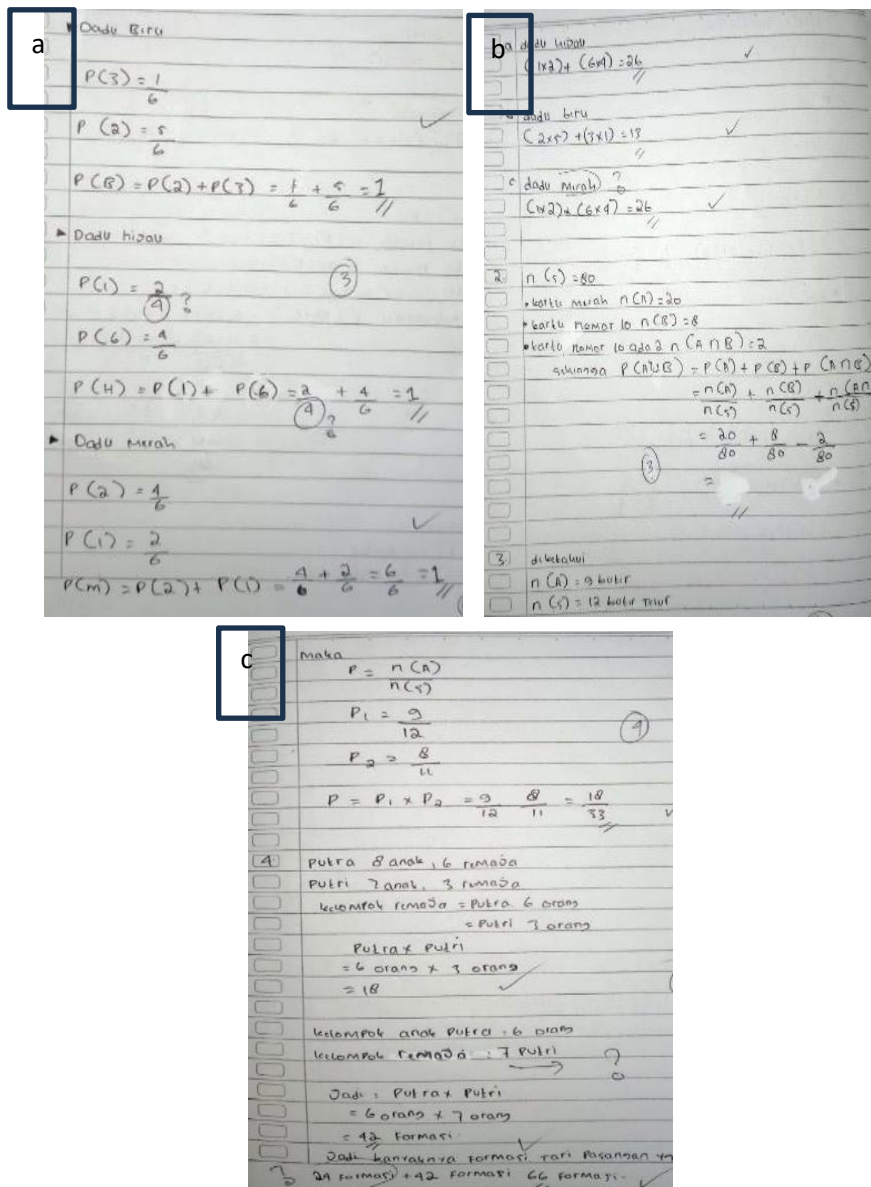 a
Dadu Biru
P(3) = 1/6
P(2) = 5/6
P(B) = P(2) + P(3) = 1/6 + 5/6 = 1
Dadu hijau
P(1) = 2/4 ?
3
P(6) = 4/6
P(H) = P(1) + P(6) = 2/4 + 4/6 = 1
?
Dadu Merah
P(2) = 4/6
P(1) = 2/6
P(m) = P(2) + P(1) = 4/6 + 2/6 = 6/6 = 1
b
a dadu hijau
(1x2) + (6x4) = 26
dadu biru
(2x5) + (3x1) = 13
c dadu Mirah ?
(1x2) + (6x4) = 26
2 n(s) = 80
• kartu merah n(A) = 20
• kartu nomor 10 n(B) = 8
• kartu nomor 10 ada 2 n(A∩B) = 2
sehingga P(AUB) = P(A) + P(B) + P(A∩B)
= n(A)/n(s) + n(B)/n(s) + n(A∩/n(s)
= 20/80 + 8/80 - 2/80
3
=
3. diketahui
n(A) = 9 butir
n(s) = 12 butir telur
c
Maka
P = n(A)/n(s)
P1 = 9/12
4
P2 = 8/11
P = P1 x P2 = 9/12 8/11 = 18/33
4 Putra 8 anak, 6 remaja
Putri 7 anak, 3 remaja
kelompok remaja = Putra 6 orang
= Putri 3 orang
Putra x Putri
= 6 orang x 3 orang
= 18
kelompok anak Putra : 6 orang
kelompok remaja : 7 Putri ?
Jadi : Putra x Putri
= 6 orang x 7 orang
= 42 Formasi.
Jadi banyaknya Formasi tari Pasangan
? 24 Formasi + 42 Formasi 66 Formasi.